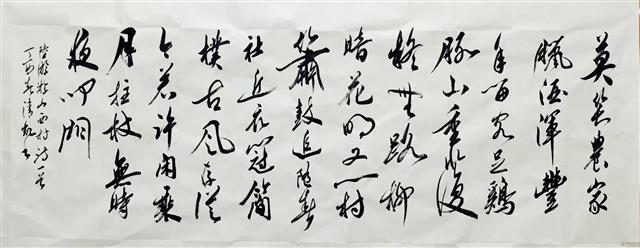 莫笑農家
臘酒渾豐
年留客足鷄
豚山重水復
疑無路柳
暗花明又一村
簫鼓追隨春
社近衣冠簡
樸古風存從
今若許閑乘
月拄杖無時
夜叩門
陸游游山西村詩一首
丁酉春清